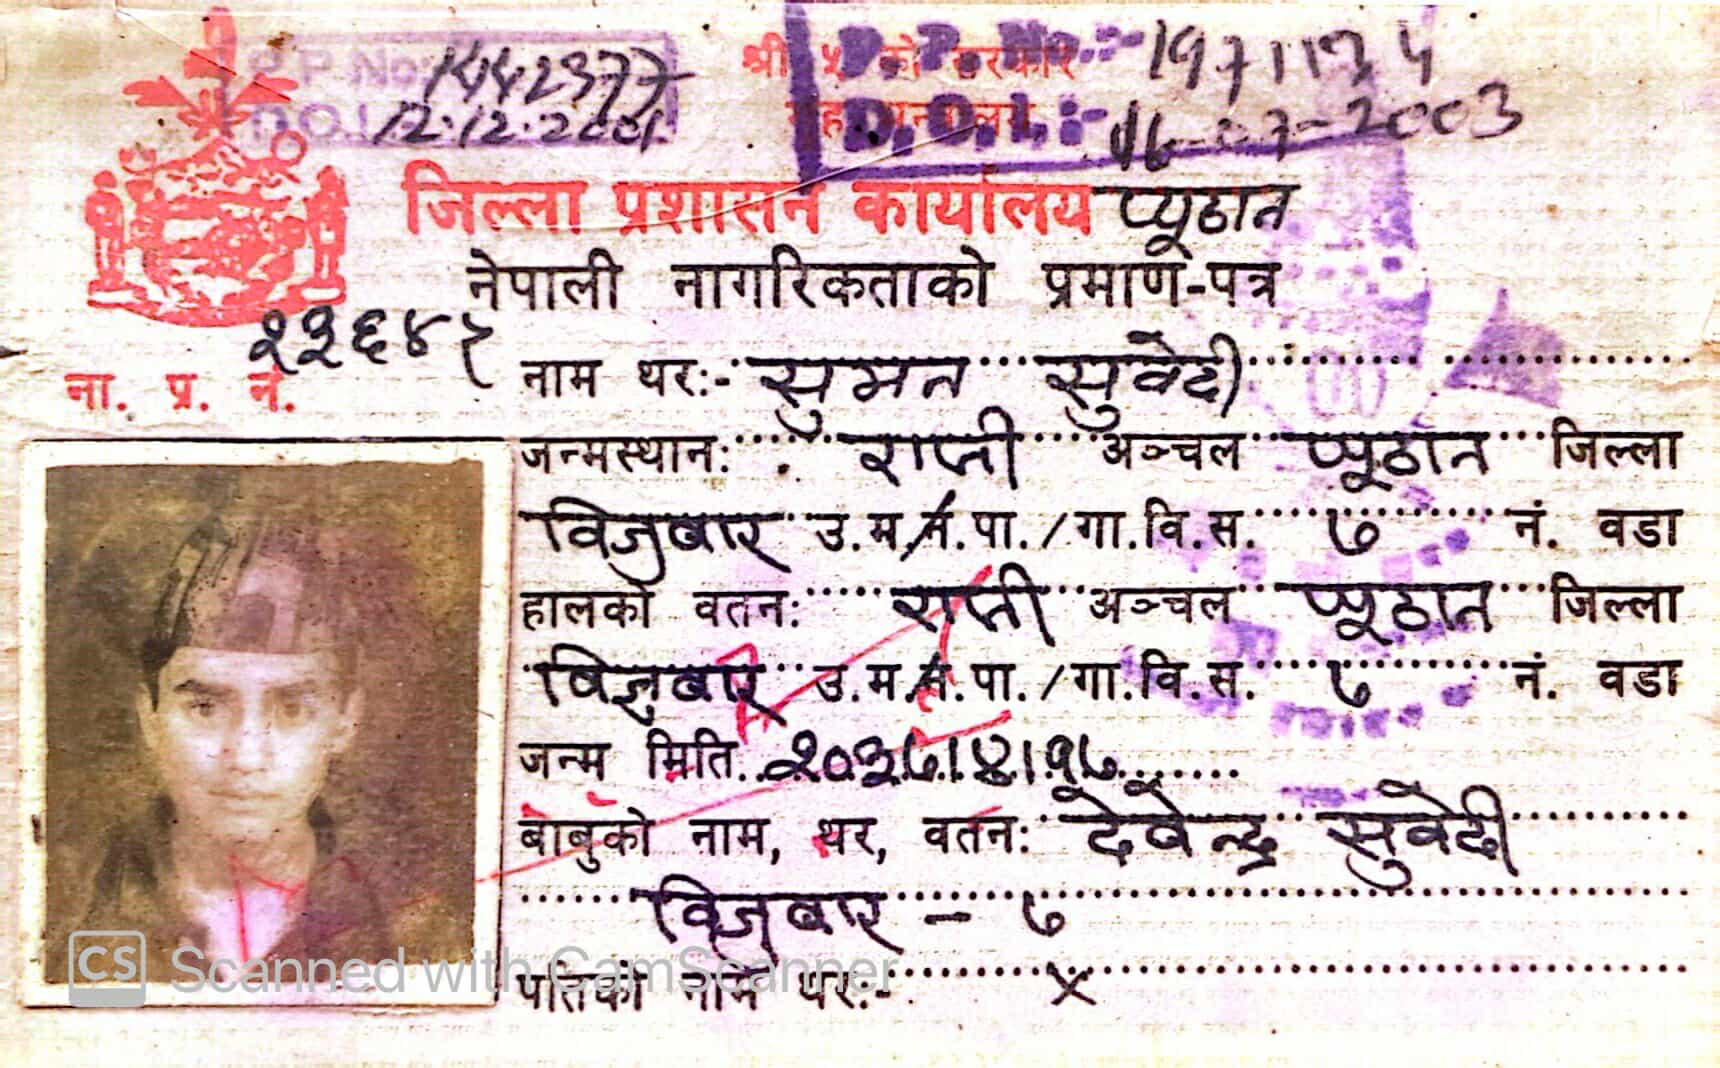 P.P No: 1442377
D.O.I. 12.12.2001
श्री ५ को सरकार
गृह मन्त्रालय
P.P. No.:- 1971134
D.O.I.:- 16-07-2003
जिल्ला प्रशासन कार्यालय प्यूठान
नेपाली नागरिकताको प्रमाण-पत्र
ना. प्र. नं.
नाम थर:- सुमन सुवेदी
जन्मस्थान: राप्ती अञ्चल प्यूठान जिल्ला
विजुवार उ.म./न.पा./गा.वि.स. ७ नं. वडा
हालको वतन: राप्ती अञ्चल प्यूठान जिल्ला
विजुवार उ.म./न.पा./गा.वि.स. ७ नं. वडा
जन्म मिति २०३७।४।१७
बाबुको नाम, थर, वतन: देवेन्द्र सुवेदी
विजुवार - ७
पतिको नाम थर:- x
CS Scanned with CamScanner